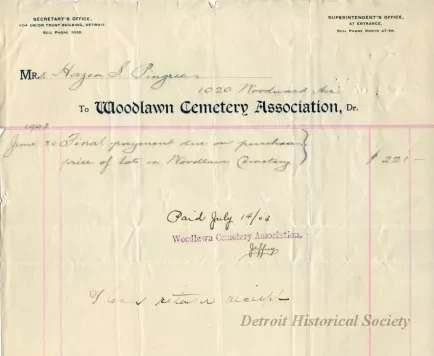 SECRETARY'S OFFICE,
UNION TRUST BUILDING, DETROIT.
BELL PHONE 1035.
SUPERINTENDENT'S OFFICE,
AT ENTRANCE,
BELL PHONE NORTH
Mrs. Hazen S. Pingree
1020 Woodward Ave
To Woodlawn Cemetery Association, Dr.
1903
June 30 Final payment due on purchase
price of lots in Woodlawn Cemetery } $ 221 —
Paid July 14/03
Woodlawn Cemetery Association.
Please return receipt
Detroit Historical Society